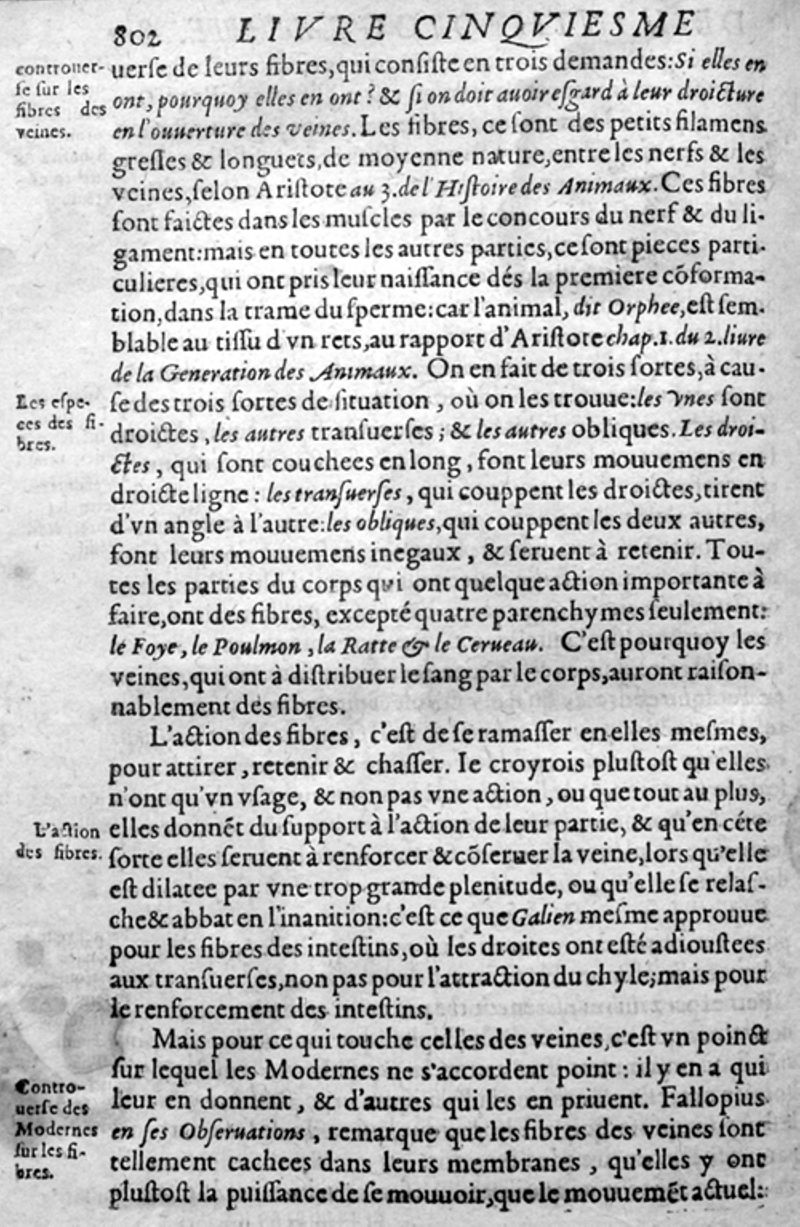 802 LIVRE CINQVIESME
controuer-
se sur les
fibres des
veines.
uerse de leurs fibres,qui consiste en trois demandes:Si elles en
ont, pourquoy elles en ont? & si on doit auoir esgard à leur droicture
en l'ouuerture des veines. Les fibres, ce sont des petits filamens
gresles & longuets,de moyenne nature,entre les nerfs & les
veines,selon Aristote au 3.de l'Histoire des Animaux. Ces fibres
sont faictes dans les muscles par le concours du nerf & du li-
gament:mais en toutes les autres parties,ce sont pieces parti-
culieres,qui ont pris leur naissance dés la premiere cõforma-
tion,dans la trame du sperme:car l'animal, dit Orphee,est sem-
blable au tissu d'vn rets,au rapport d'Aristote chap.1.du 2.liure
de la Generation des Animaux. On en fait de trois sortes,à cau-
Les espe-
ces des fi-
bres.
se des trois sortes de situation , où on les trouue:les vnes sont
droictes , les autres transuerses ; & les autres obliques. Les droi-
ctes , qui sont couchees en long , font leurs mouuemens en
droicte ligne : les transuerses , qui couppent les droictes,tirent
d'vn angle à l'autre:les obliques,qui couppent les deux autres,
font leurs mouuemens inegaux , & seruent à retenir. Tou-
tes les parties du corps qui ont quelque action importante à
faire,ont des fibres, excepté quatre parenchymes seulement:
le Foye, le Poulmon , la Ratte & le Cerueau. C'est pourquoy les
veines,qui ont à distribuer le sang par le corps,auront raison-
nablement des fibres.
L'action des fibres , c'est de se ramasser en elles mesmes,
pour attirer , retenir & chasser. Ie croyrois plustost qu'elles
n'ont qu'vn vsage, & non pas vne action , ou que tout au plus,
L'action
des fibres.
elles donnét du support à l'action de leur partie, & qu'en céte
sorte elles seruent à renforcer & cõseruer la veine,lors qu'elle
est dilatee par vne trop grande plenitude, ou qu'elle se relas-
che & abbat en l'inanition:c'est ce que Galien mesme approuue
pour les fibres des intestins,où les droites ont esté adioustees
aux transuerses,non pas pour l'attraction du chyle;mais pour
le renforcement des intestins.
Mais pour ce qui touche celles des veines,c'est vn poinct
sur lequel les Modernes ne s'accordent point : il y en a qui
Contro-
uerse des
Modernes
sur les fi-
bres.
leur en donnent , & d'autres qui les en priuent. Fallopius
en ses Obseruations , remarque que les fibres des veines sont
tellement cachees dans leurs membranes , qu'elles y ont
plustost la puissance de se mouuoir,que le mouuemét actuel: